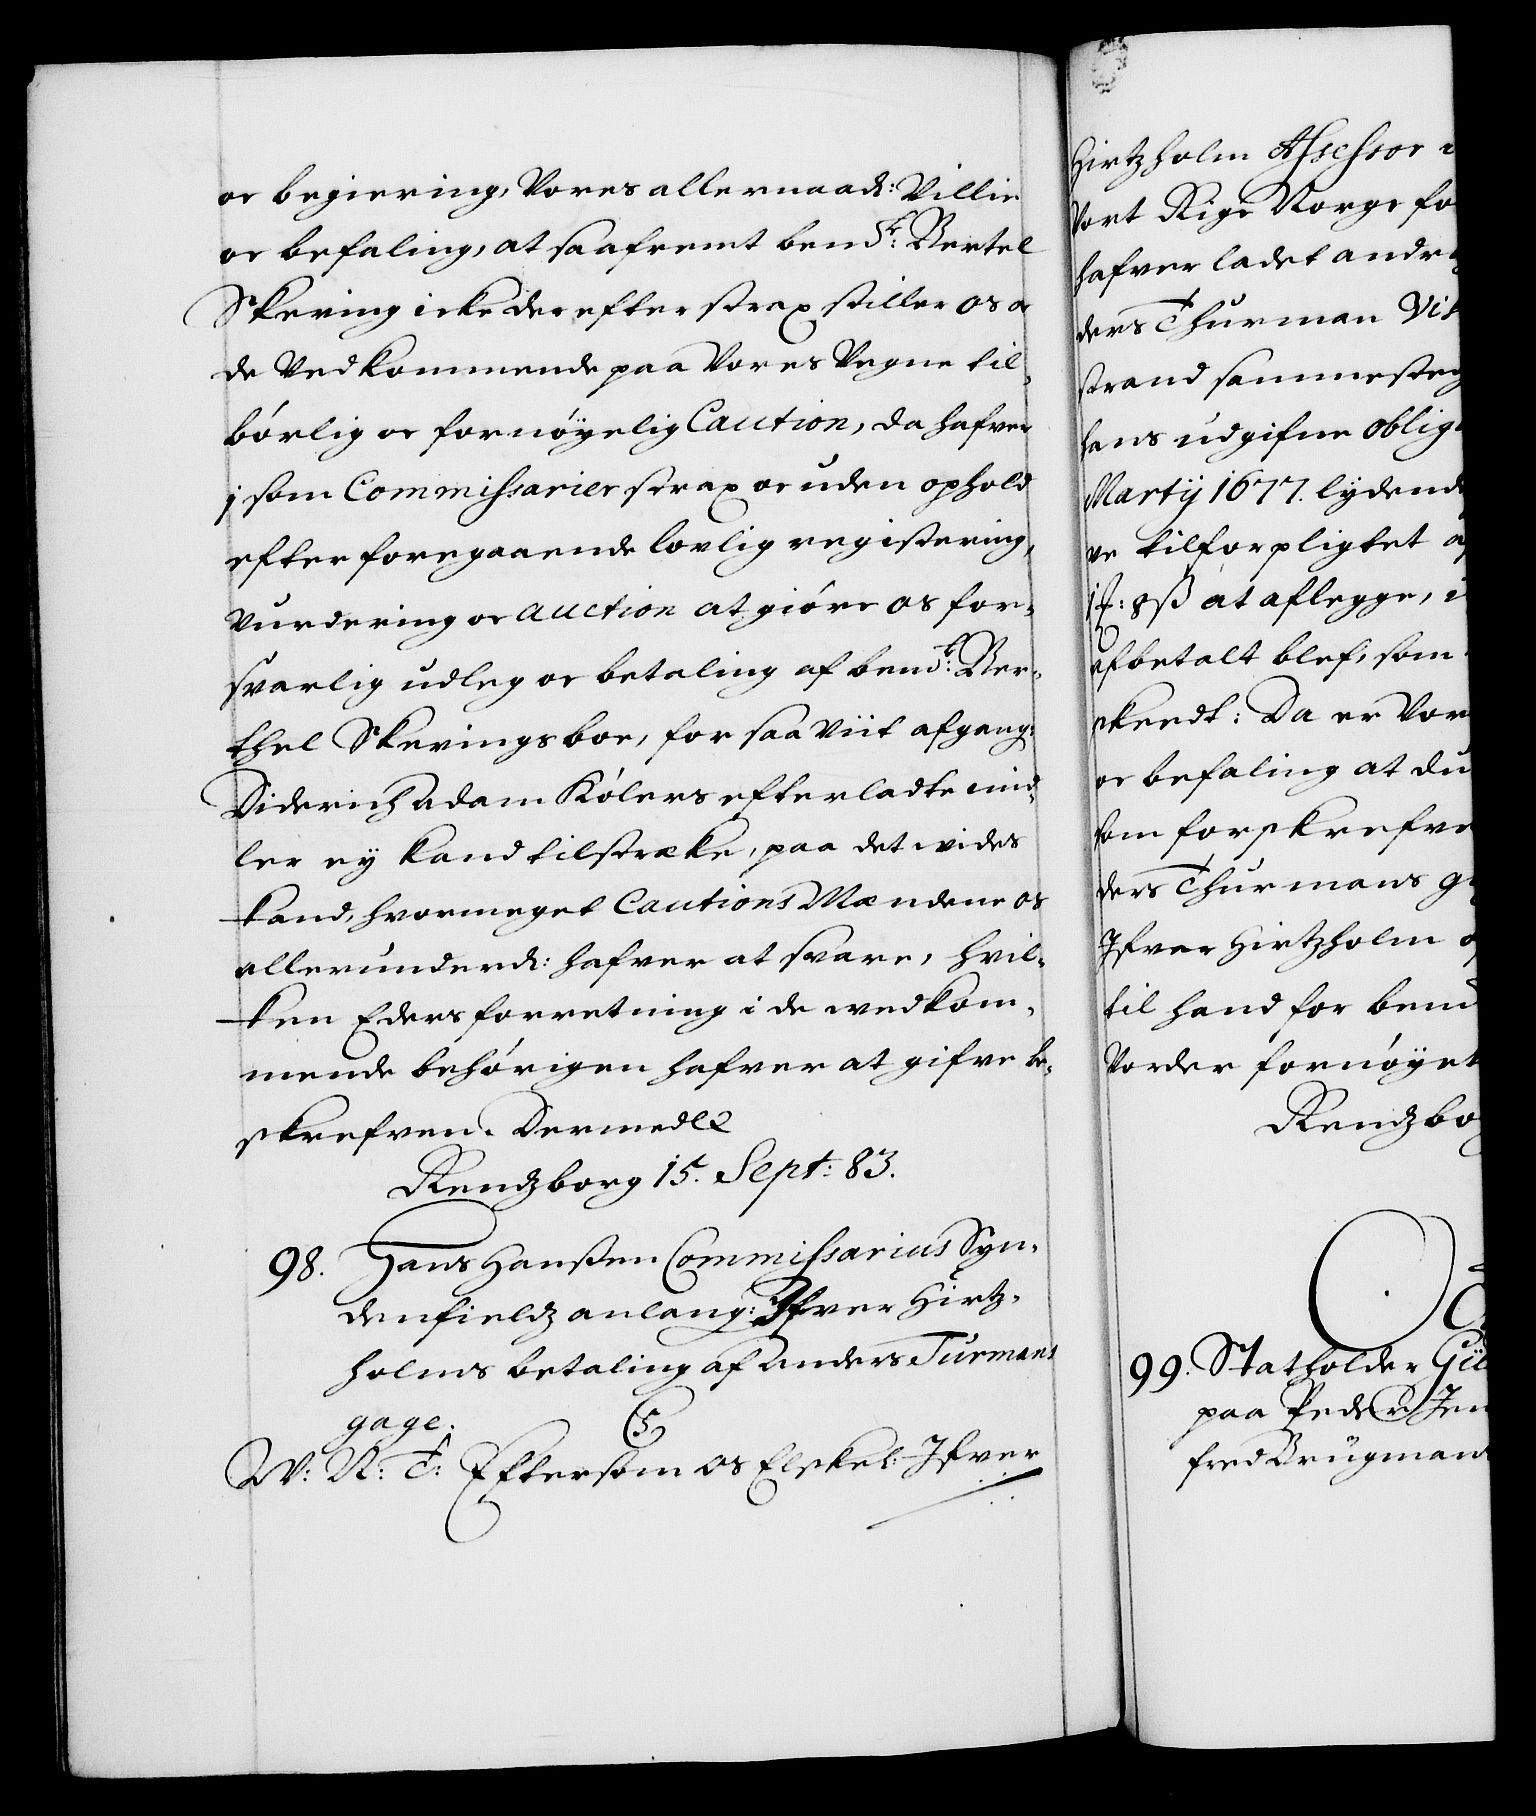 oc begiering, Vores allernaad: Villie
oc befaling, at saafremt bemdt: Bertel
Skering icke der efter strax stiller os oc
de Vedkommende paa Vores Vegne til-
børlig oc fornøyelig Caution, da hafver
j som Commissarier strax oc uden ophold
efter foregaaende lovlig registering,
Vurdering oc auction at giøre os for-
svarlig udleg oc betaling af bemdt: Ber-
thel Skerings boe, for saa viit afgang:
Diderich Adam Kølers efterladte mid-
ler ey kand tilstrække, paa det vides
kand, hvormeget Cautions Mændene os
allerunderd: hafver at svare, hvil-
ken Eders forretning i de vedkom-
mende behørigen hafver at gifve be-
skrefven. Dermed etc
Rendzborg 15. Sept: 83.
98. Hans Hanssen Commissarius Syn-
denfieldz anlang: Ifver Hirtz-
holms betaling af Anders Turmans
gage.
W: N: T: Eftersom os Elskel: Ifver
Hirtzholm Assessor i
Vort Rige Norge fo
hafver ladet andra
ders Thurman Vis
strand sammesteds
hans udgifne oblig
Martij 1677. lydende
ve tilforpligtet a
1 f: 8 ß at aflegge, i
afbetalt blef, som
skeedt: Da er Vor
oc befaling at du
som forskrefve
ders Thurmans ga
Ifver Hirtzholm o
til hand for bem
Vorder fornøyet
Rendzbo
99. Statholder Gül
paa Peder Jen
fred Brügman